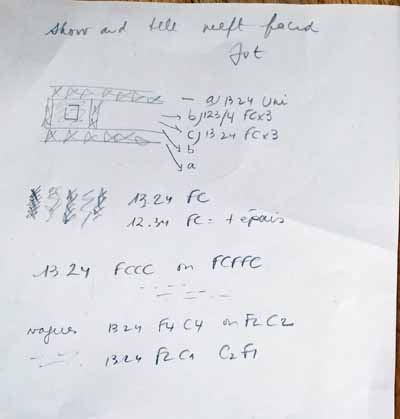 Show and tell weft faced
Jut
a) 1324 Uni
b) 123/4 FC x3
c) 1324 FC x3
b
a
13.24 FC
12.34 FC = + épais
1324 FCCC on FCFFC
vagues 1324 F4 C4 on F2 C2
1324 F2C1 C2F1